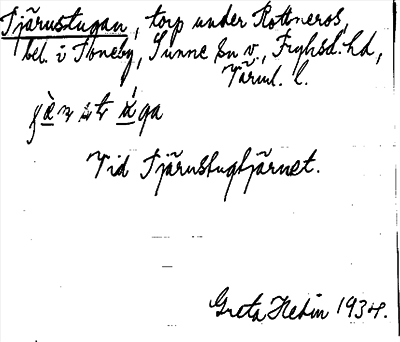 Tjärustugan, torp under Rottneros,
bel. i Toneby, Sunne sn v., Fryksd. hd,
Värml. l.
Vid Tjärustugtjärnet.
Greta Hedin 1934.